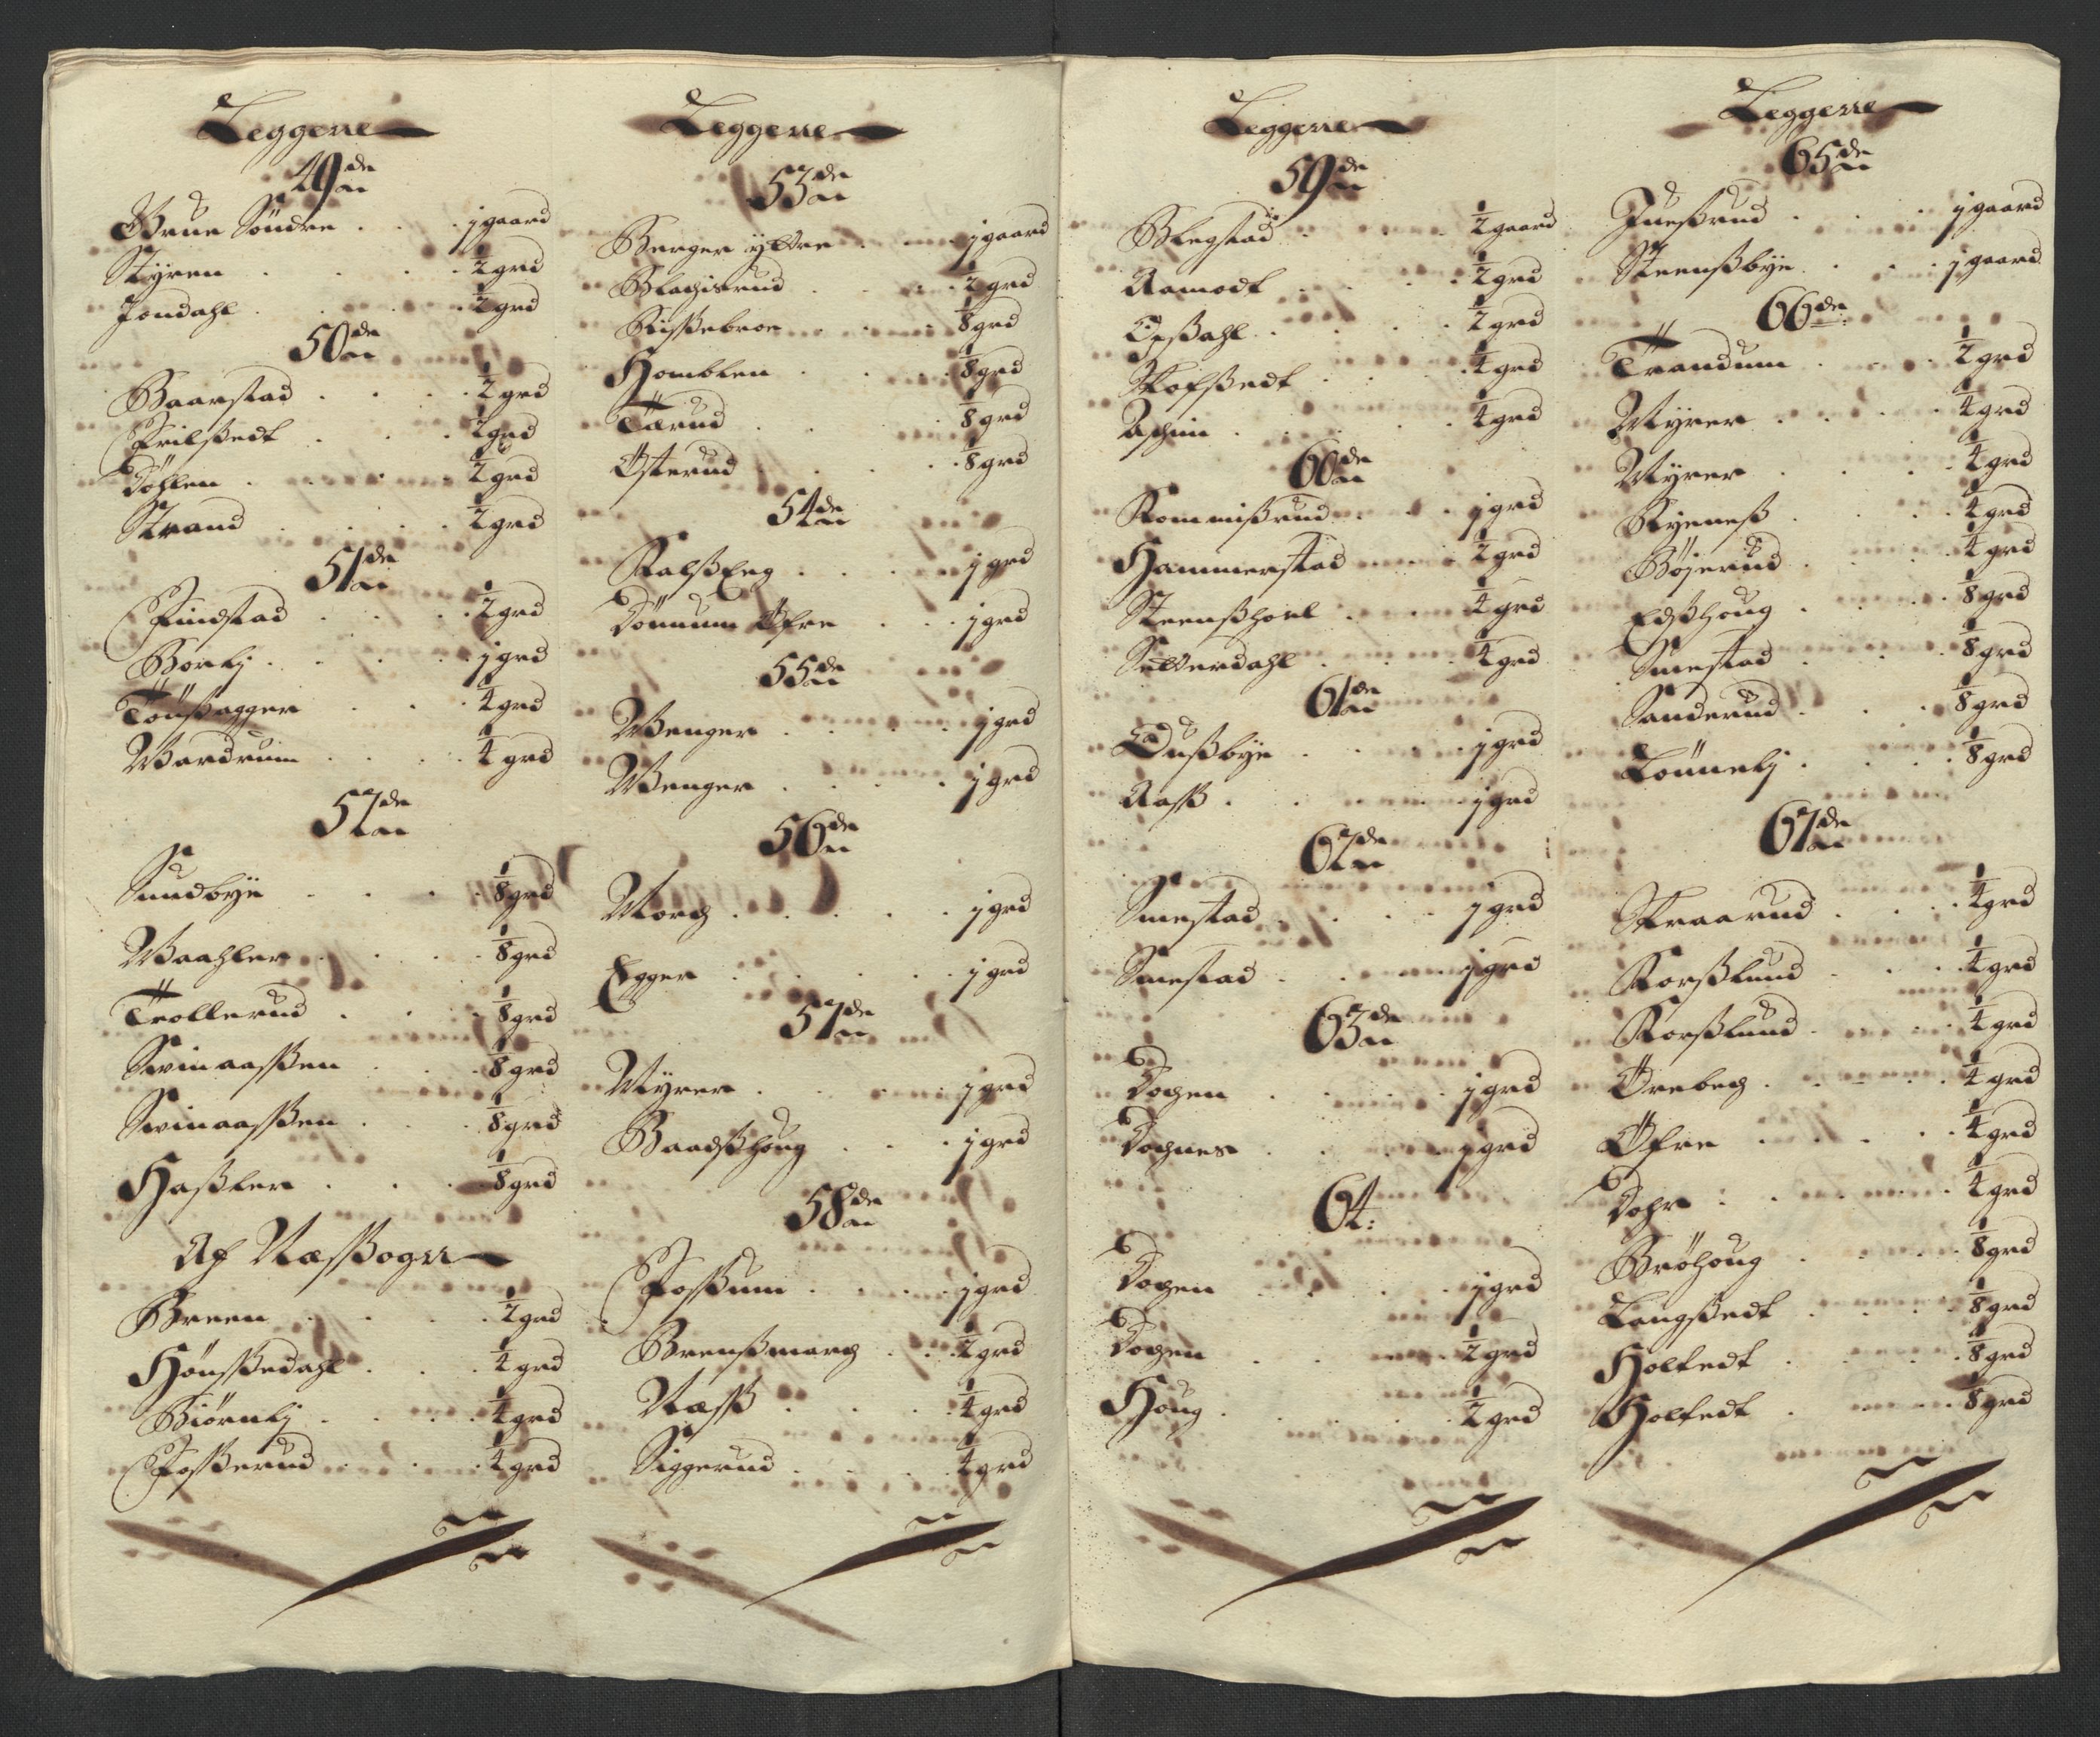 Leggerne
49de
Grue Söndre . . . 1 gaard
Styren . . . 1/2 grd
Jondahl . . . 1/2 grd
50de
Baarstad . . . 1/2 grd
Frilßedt . . . 1/2 grd
Döhlen . . . 1/2 grd
Strand . . . 1/2 grd
51de
Findstad . . . 1/2 grd
Borlj . . . 1 grd
Tönßagger . . . 1/4 grd
Wardrum . . . 1/4 grd
52de
Sundbye . . . 1/8 grd
Waahler . . . 1/8 grd
Trollerud . . . 1/8 grd
Svinaasßen . . . 1/8 grd
Svinaasßen . . . 1/8 grd
Haßler . . . 1/8 grd
Af Næsßogn
Breen . . . 1/2 grd
Hönsßedahl . . . 1/4 grd
Biörnlj . . . 1/4 grd
Fosßerud . . . 1/4 grd
Leggerne
53de
Berger ÿttre . . . 1 gaard
Blachisrud . . . 1/2 grd
Risßebroe . . . 1/8 grd
Homblen . . . 1/8 grd
Tærud . . . 1/8 grd
Österud . . . 1/8 grd
54de
KalßEng . . . 1 grd
Dönnum Öfre . . . 1 grd
55de
Wenger . . . 1 grd
Wenger . . . 1 grd
56de
Morch . . . 1 grd
Egger . . . 1 grd
57de
Myrer . . . 1 grd
Baadßhoug . . . 1 grd
58de
Fosßum . . . 1 grd
Brenßmarch . . . 1/2 grd
Næsß . . . 1/4 grd
Siggerud . . . 1/4 grd
Leggerne
59de
Blegstad . . . 1/2 gaard
Aamodt . . . 1/2 grd
Opßahl . . . 1/2 grd
Kofßedt . . . 1/4 grd
Aschim . . . 1/4 grd
60de
Rommißrud . . . 1 grd
Hammerstad . . . 1/2 grd
Steenßhoel . . . 1/4 grd
Sætterdahl . . . 1/4 grd
61de
Dußbye . . . 1 grd
Aasß . . . 1 grd
62de
Smestad . . . 1 grd
Smestad . . . 1 grd
63de
Dochen . . . 1 grd
Dochnes . . . 1 grd
64:
Dochen . . . 1 grd
Dochen . . . 1/2 grd
Houg . . . 1/2 grd
Leggerne
65de
Jueßrud . . . 1 gaard
Steenßbye . . . 1 gaard
66de
Trandum . . . 1/2 grd
Myrer . . . 1/4 grd
Myrer . . . 1/4 grd
Ryeneß . . . 1/4 grd
Böjerud . . . 1/4 grd
Edßhoug . . . 1/8 grd
Smestad . . . 1/8 grd
Sanderud . . . 1/8 grd
Lönnelj . . . 1/8 grd
67de
Kraarud . . . 1/4 grd
Korßlund . . . 1/4 grd
Korßlund . . . 1/4 grd
Örebech . . . 1/4 grd
Öfre . . . 1/4 grd
Dohr . . . 1/4 grd
Bröhoug . . . 1/8 grd
Langßedt . . . 1/8 grd
Holtedt . . . 1/8 grd
Holtedt . . . 1/8 grd